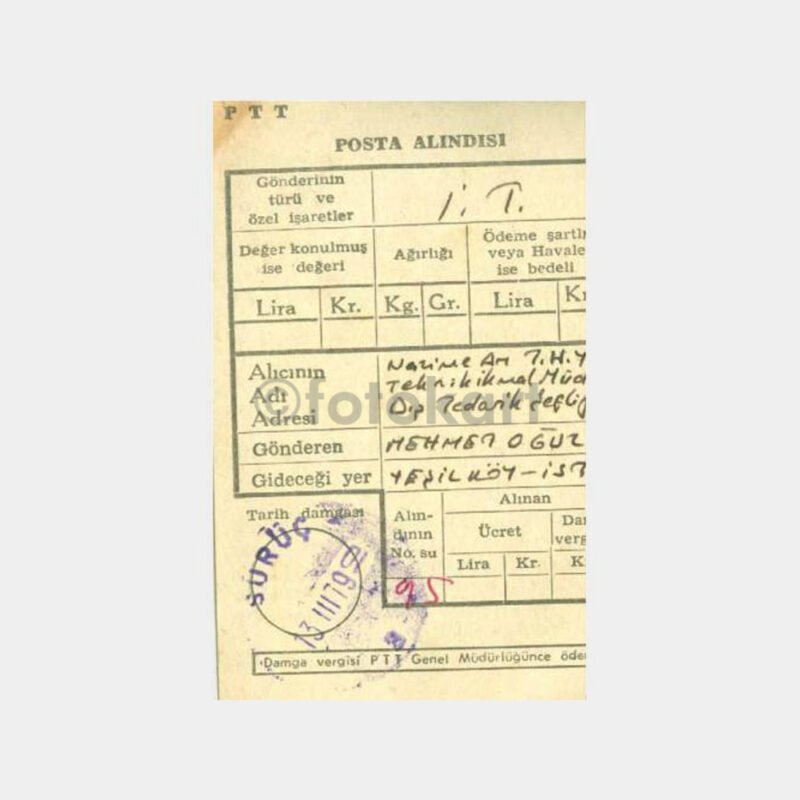 PTT
POSTA ALINDISI
Gönderinin
türü ve
özel işaretler
İ. T.
Değer konulmuş
ise değeri
Ağırlığı
Ödeme şartlı
veya Havale
ise bedeli
Lira Kr. Kg. Gr. Lira K
Alıcının
Adı
Adresi
Nazime Arı T.H.Y
Teknik ikmal Müd
Dış Tedarik Şefliğ
©fotokart
Gönderen
MEHMET OĞUZ
Gideceği yer
YEŞİLKÖY-İST
Tarih damgası
SURUÇ
13 III 79
Alın-
dının
No. su
Alınan
Ücret
Da
verg
Lira Kr. K
95
Damga vergisi PTT Genel Müdürlüğünce öde